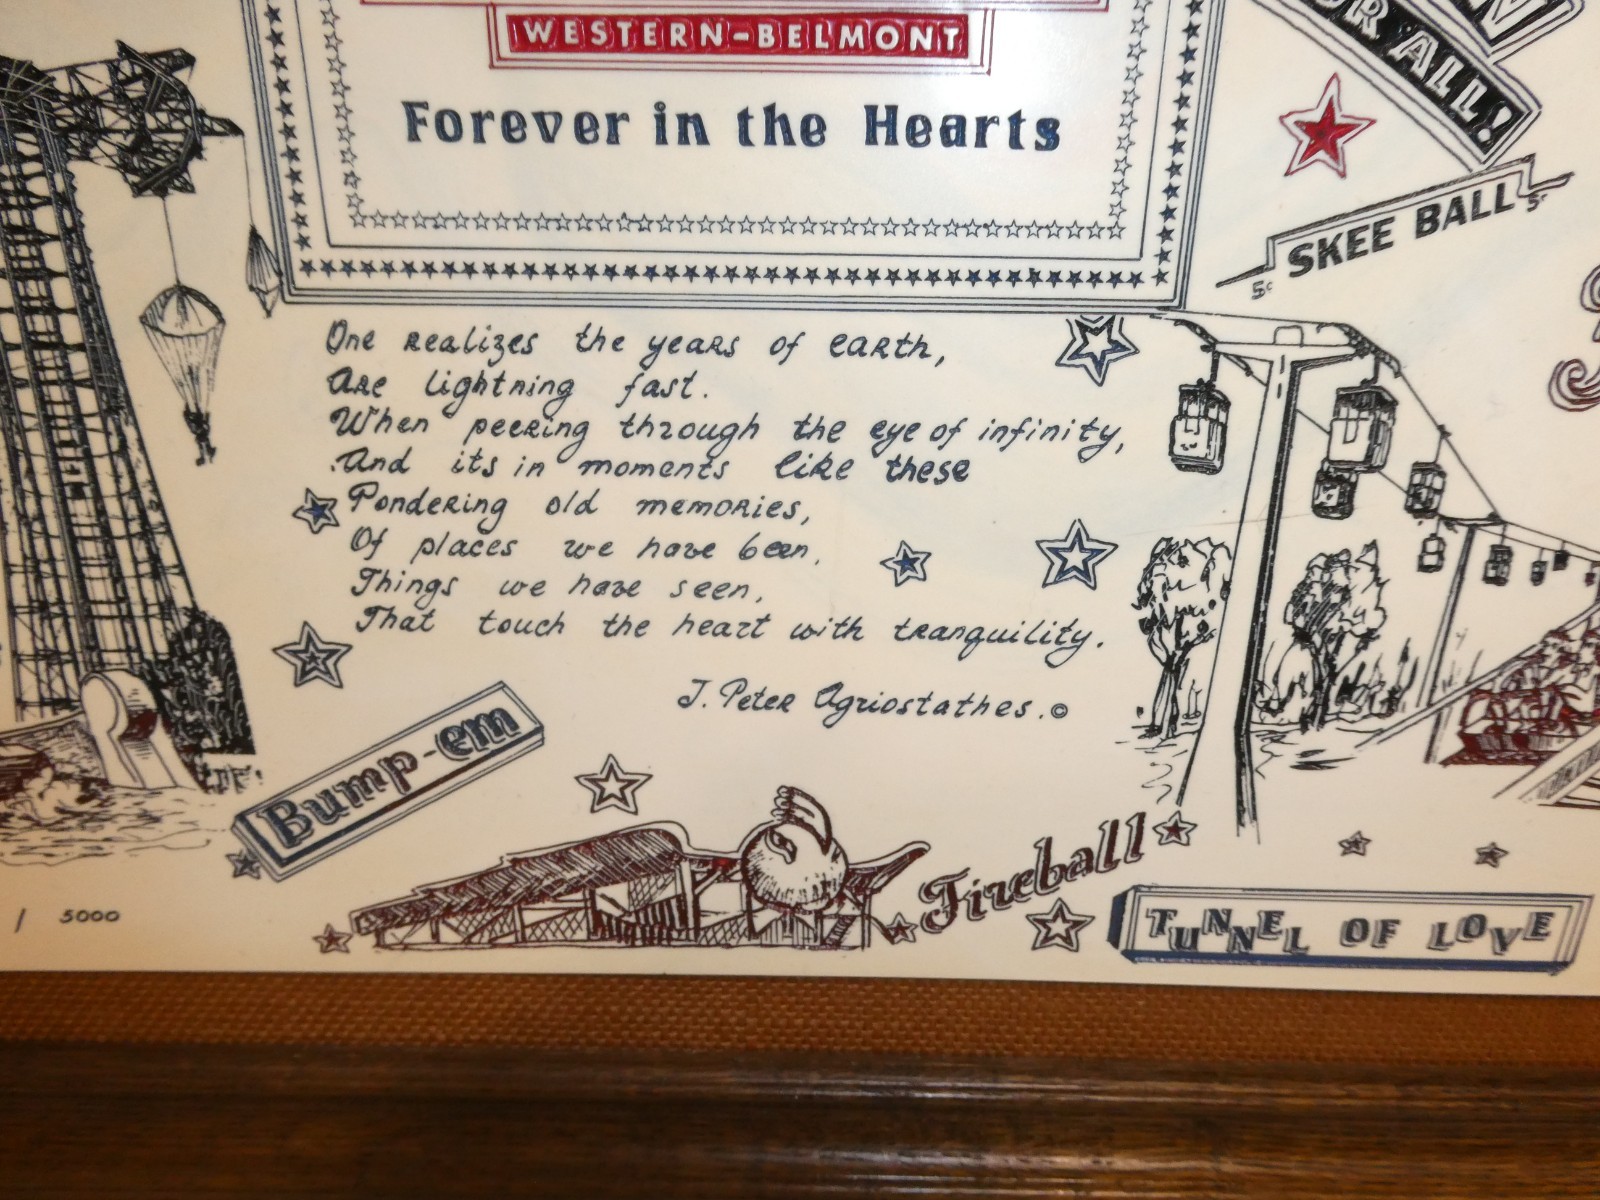 WESTERN-BELMONT
Forever in the Hearts
OR ALL!
SKEE BALL
5¢ 5¢
One realizes the years of earth,
Are lightning fast.
When peering through the eye of infinity,
And its in moments like these
Pondering old memories,
Of places we have been,
Things we have seen,
That touch the heart with tranquility.
J. Peter Agriostathes. ©
Bump-em
Fireball
TUNNEL OF LOVE
/ 5000